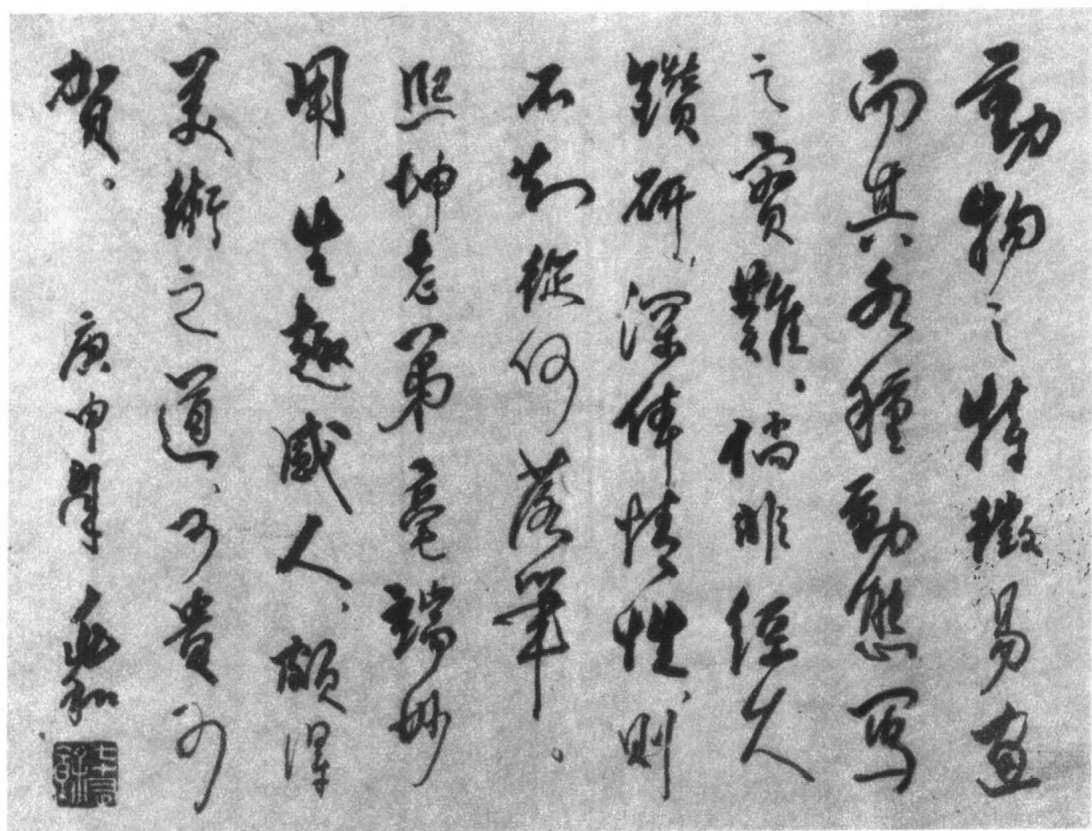 動物之特徵易畫
而其各種動態寫
之實難、倘非經久
鑽研、深体情性、則
不知從何落筆。
熙坤老弟毫端妙
用、生趣感人、頗得
美術之道、可貴可
賀。
庚申肇和